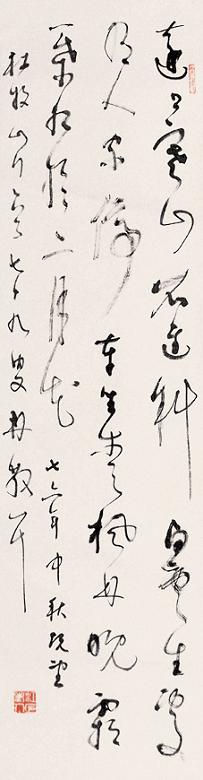 遠上寒山石逕斜白雲生處
有人家停車坐愛楓林晚霜
葉紅於二月花七六年中秋既望
杜牧山行七十九叟林散耳